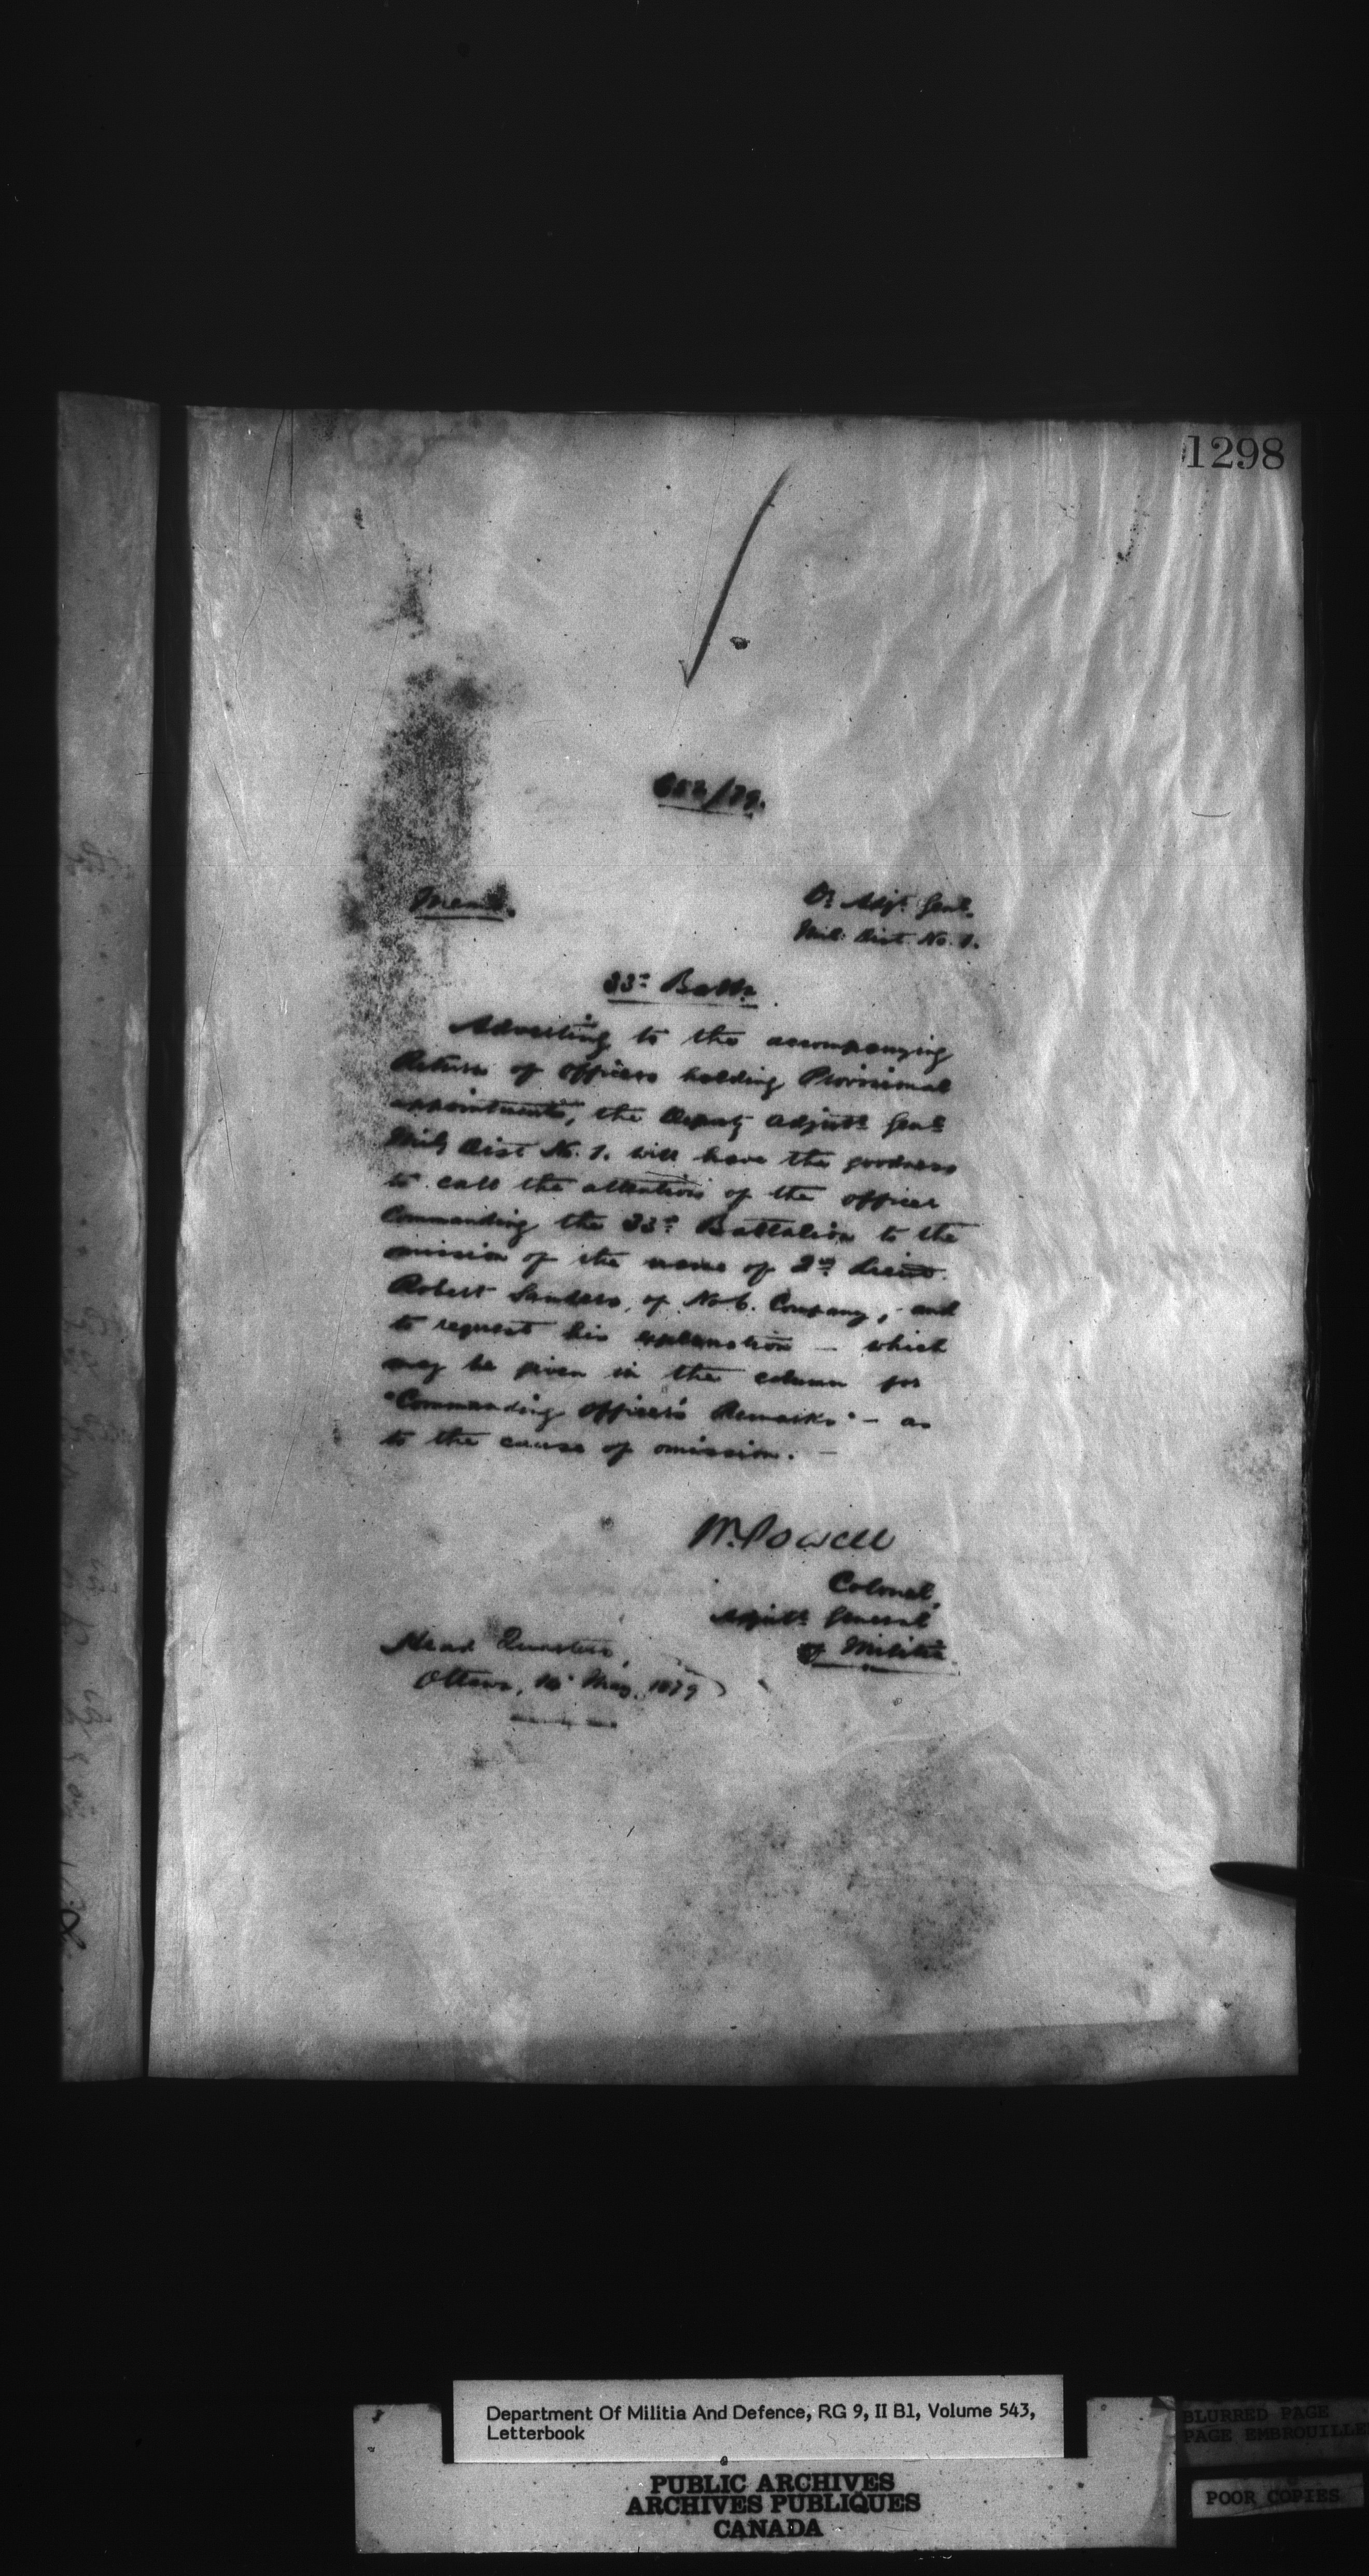 1298
/79.
Memo.
D. Adjt. Genl.
Mil: Dist. No. 1.
33d Battn
Adverting to the accompanying
Return of officers holding Provisional
appointments, the Deputy Adjutt Genl
Mily Dist No. 1. will have the goodness
to call the attention of the officer
Commanding the 33d Battalion to the
omission of the name of 2nd Lieut.
Robert Sanders, of No 6. Company, and
to request his explanation — which
may be given in the column for
"Commanding Officer's Remarks" — as
to the cause of omission. —
W. Powell
Colonel,
Adjutt General
of Militia.
Head Quarters,
Ottawa, May, 1879
Department Of Militia And Defence, RG 9, II B1, Volume 543,
Letterbook
PUBLIC ARCHIVES
ARCHIVES PUBLIQUES
CANADA
BLURRED PAGE
PAGE EMBROUILLE
POOR COPIES